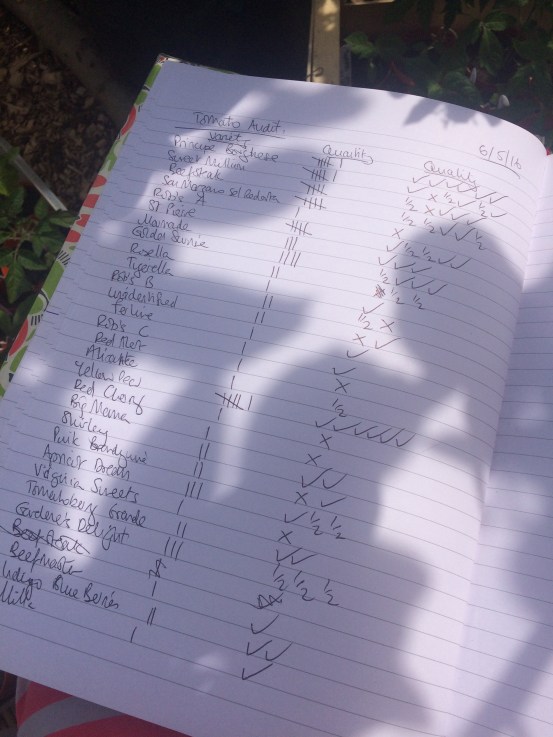 6/5/16
Tomato Audit.
Variety Quantity Quality
Principe Borghese
Sweet Million
Beefsteak
San Marzano
Rob's A
St Pierre
Marmade
Golden Sunrise
Rosella
Tigerella
Rob's B
Unidentified
Failure
Rob's C
Red
Alicante
Yellow Pear
Red Cherry
Big Mama
Shirley
Pink Brandywine
Apricot Dream
Virginia Sweets
Tomatoberry Grande
Gardener's Delight
Beefsteak
Beefmaster
Indigo Blue Berries
Milla